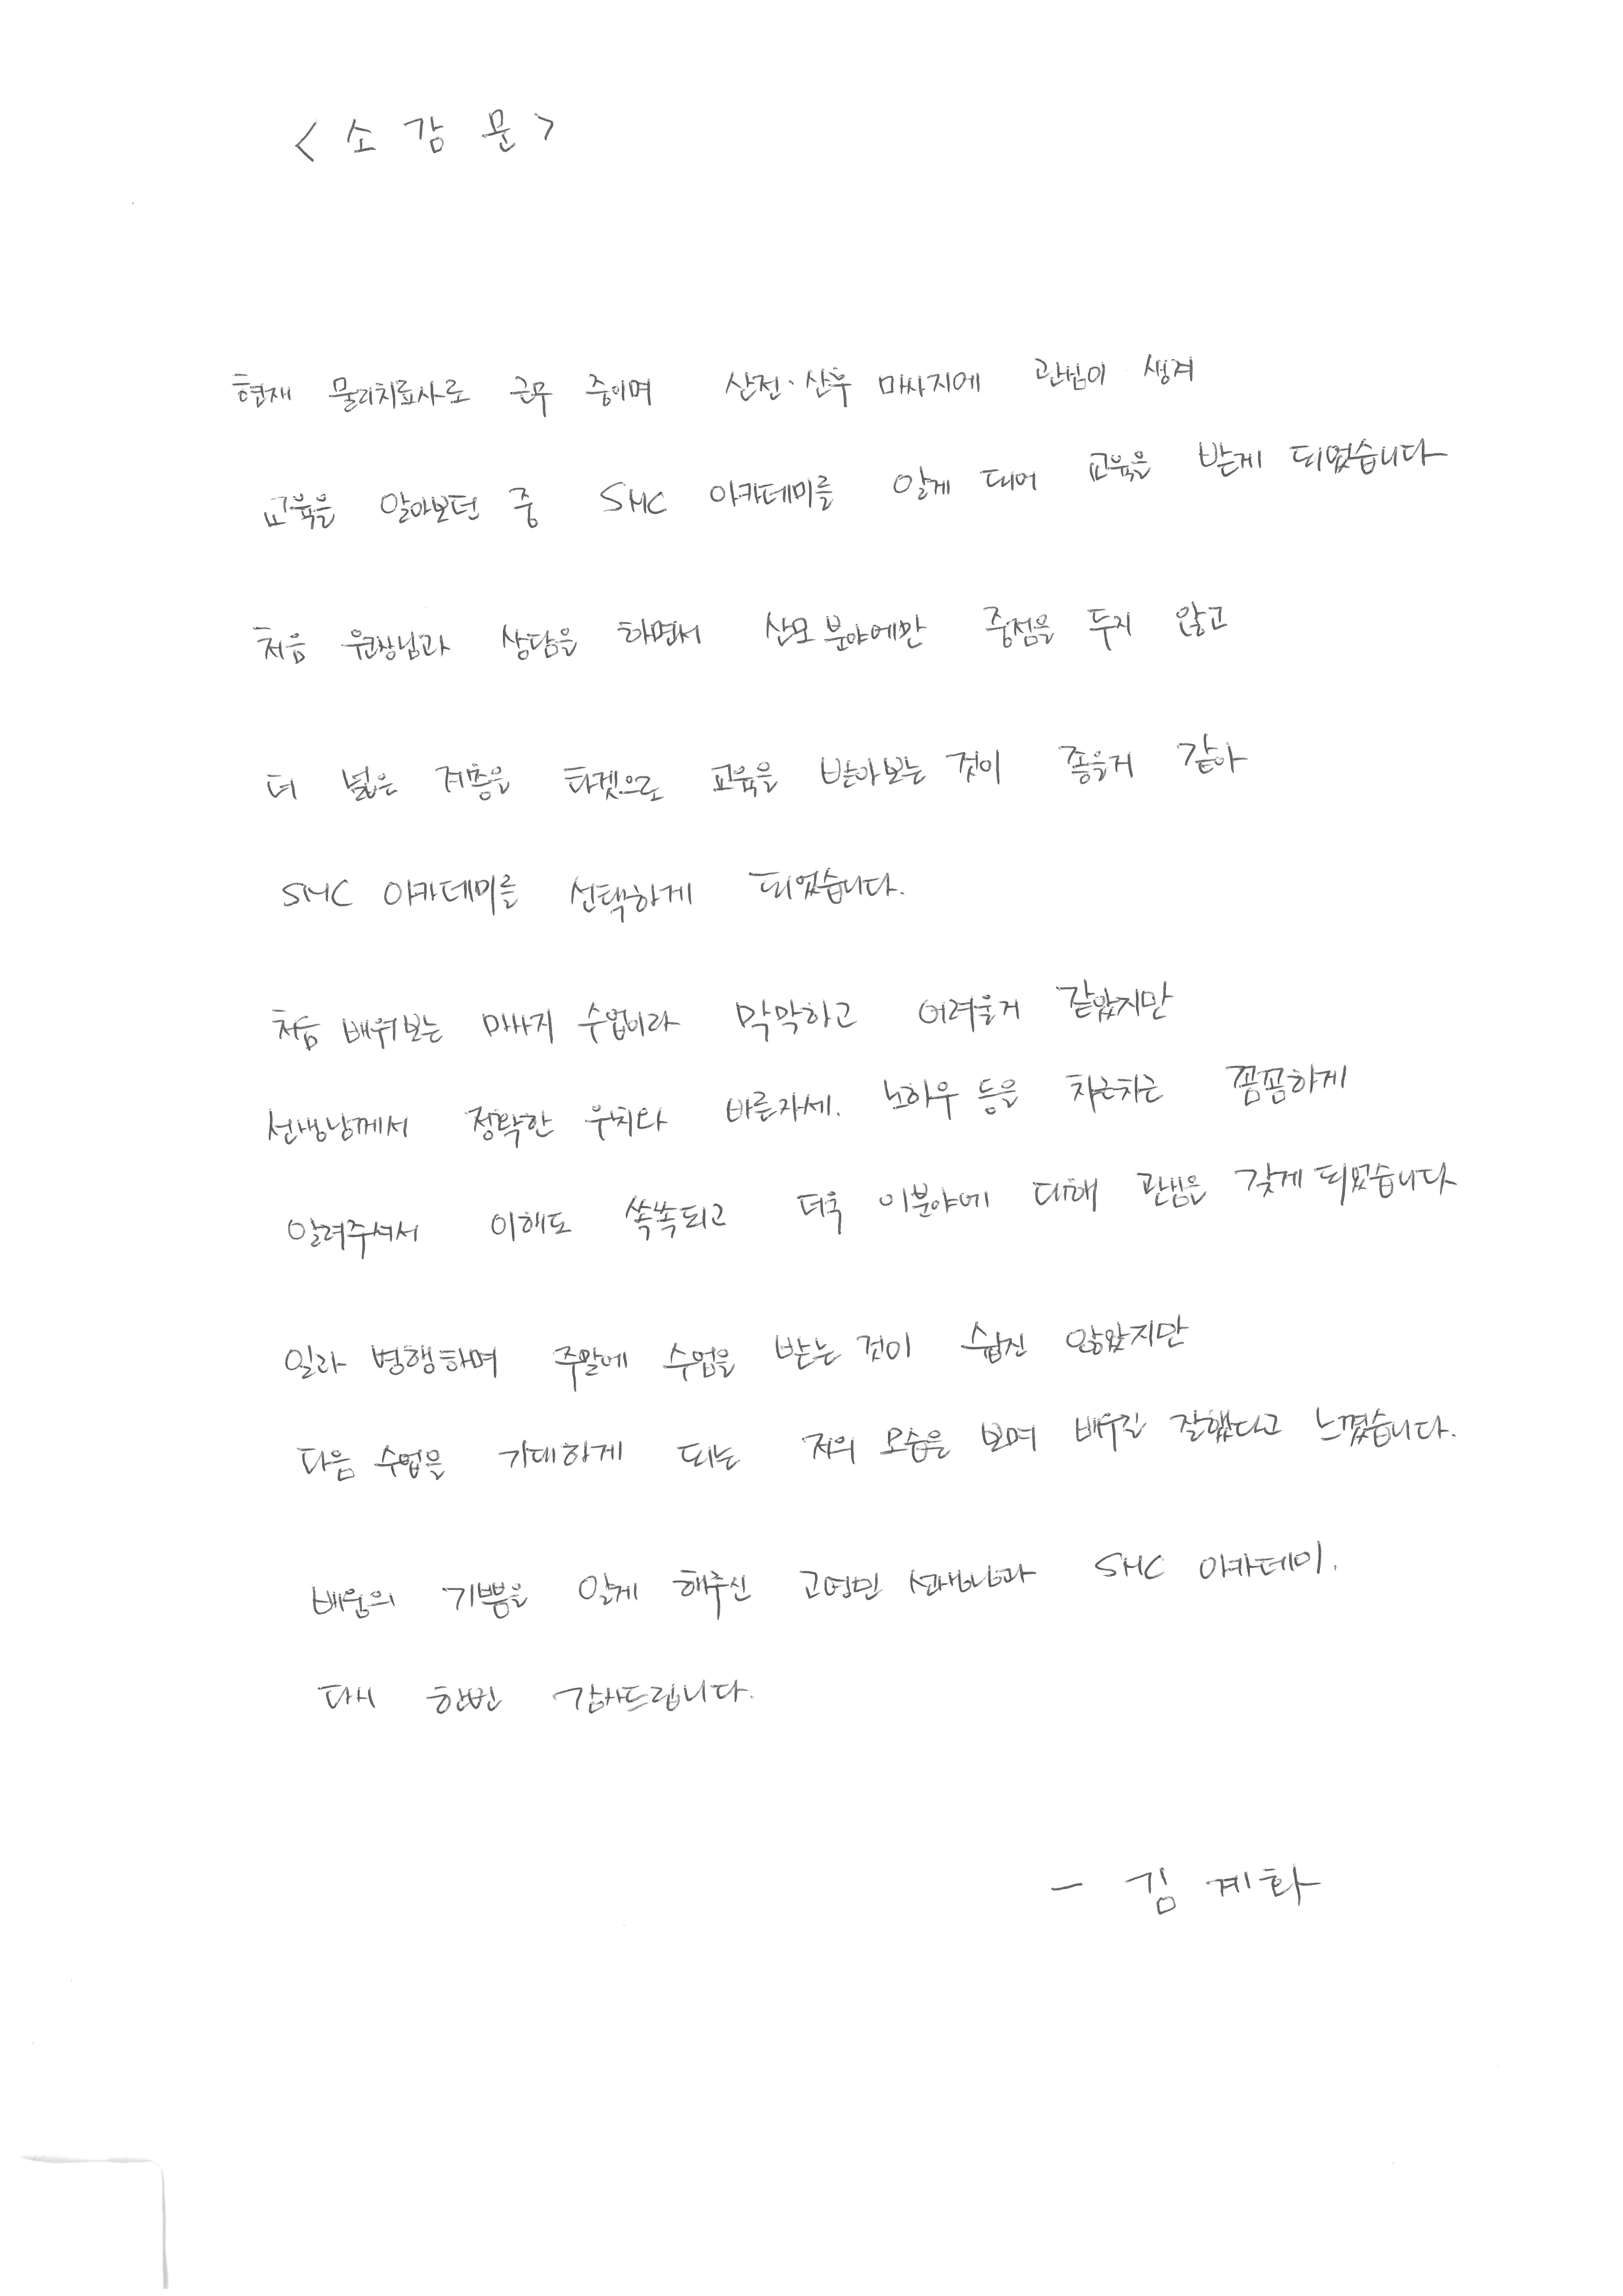 < 소 감 문 >
현재 물리치료사로 근무 중이며 산전·산후 마사지에 관심이 생겨
교육을 알아보던 중 SMC 아카데미를 알게 되어 교육을 받게 되었습니다
처음 원장님과 상담을 하면서 산모 분야에만 중점을 두지 않고
더 넓은 계층을 타겟으로 교육을 받아보는 것이 좋을거 같아
SMC 아카데미를 선택하게 되었습니다.
처음 배워보는 마사지 수업이라 막막하고 어려울거 같았지만
선생님께서 정확한 위치와 바른자세. 노하우 등을 차근차근 꼼꼼하게
알려주셔서 이해도 쏙쏙되고 더욱 이분야에 대해 관심을 갖게 되었습니다
일과 병행하며 주말에 수업을 받는 것이 쉽진 않았지만
다음 수업을 기대하게 되는 저의 모습을 보며 배우길 잘했다고 느꼈습니다.
배움의 기쁨을 알게 해주신 고영민 선생님과 SMC 아카데미.
다시 한번 감사드립니다.
- 김 계화